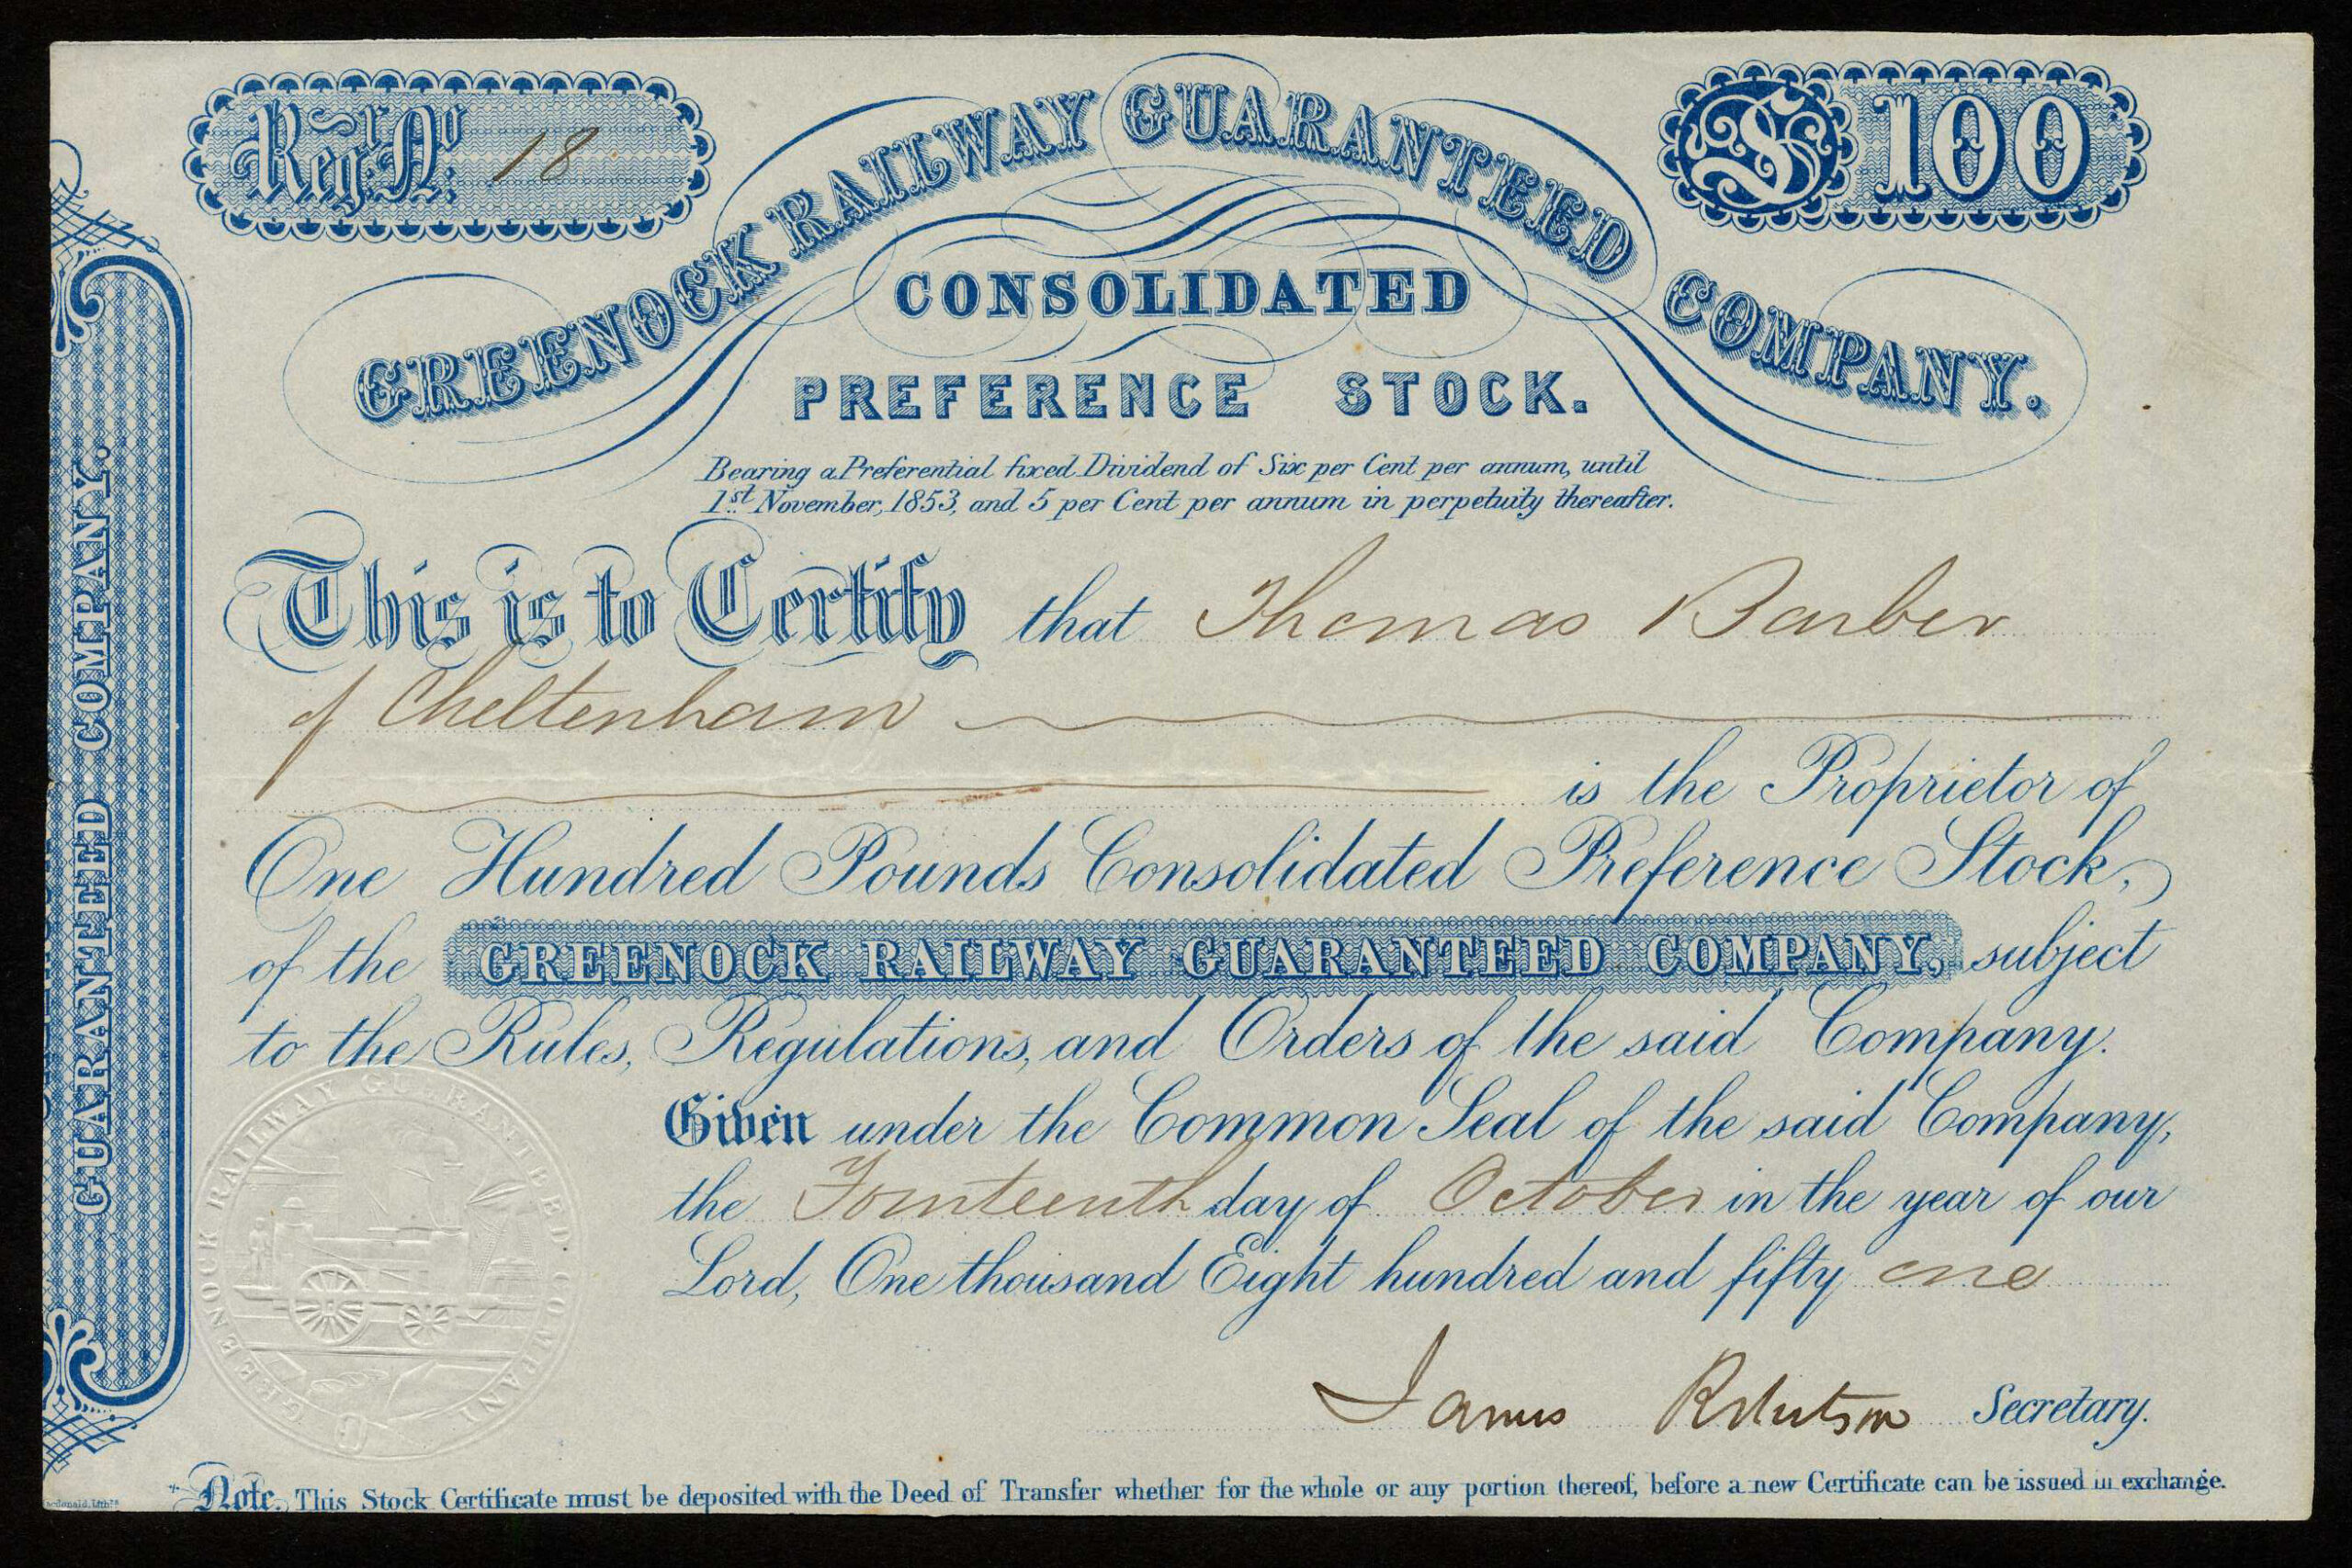 Regr. No. 18
S 100
GREENOCK RAILWAY GUARANTEED COMPANY.
CONSOLIDATED
PREFERENCE STOCK.
Bearing a Preferential fixed Dividend of Six per Cent per annum, until
1st November, 1853, and 5 per Cent per annum in perpetuity thereafter.
This is to Certify that Thomas Barber
of Cheltenham
is the Proprietor of
One Hundred Pounds Consolidated Preference Stock,
of the GREENOCK RAILWAY GUARANTEED COMPANY, subject
to the Rules, Regulations, and Orders of the said Company.
Given under the Common Seal of the said Company,
the Fourteenth day of October in the year of our
Lord, One thousand Eight hundred and fifty one
James Robertson Secretary.
Note. This Stock Certificate must be deposited with the Deed of Transfer whether for the whole or any portion thereof, before a new Certificate can be issued in exchange.
GUARANTEED COMPANY.
GREENOCK RAILWAY GUARANTEED COMPANY